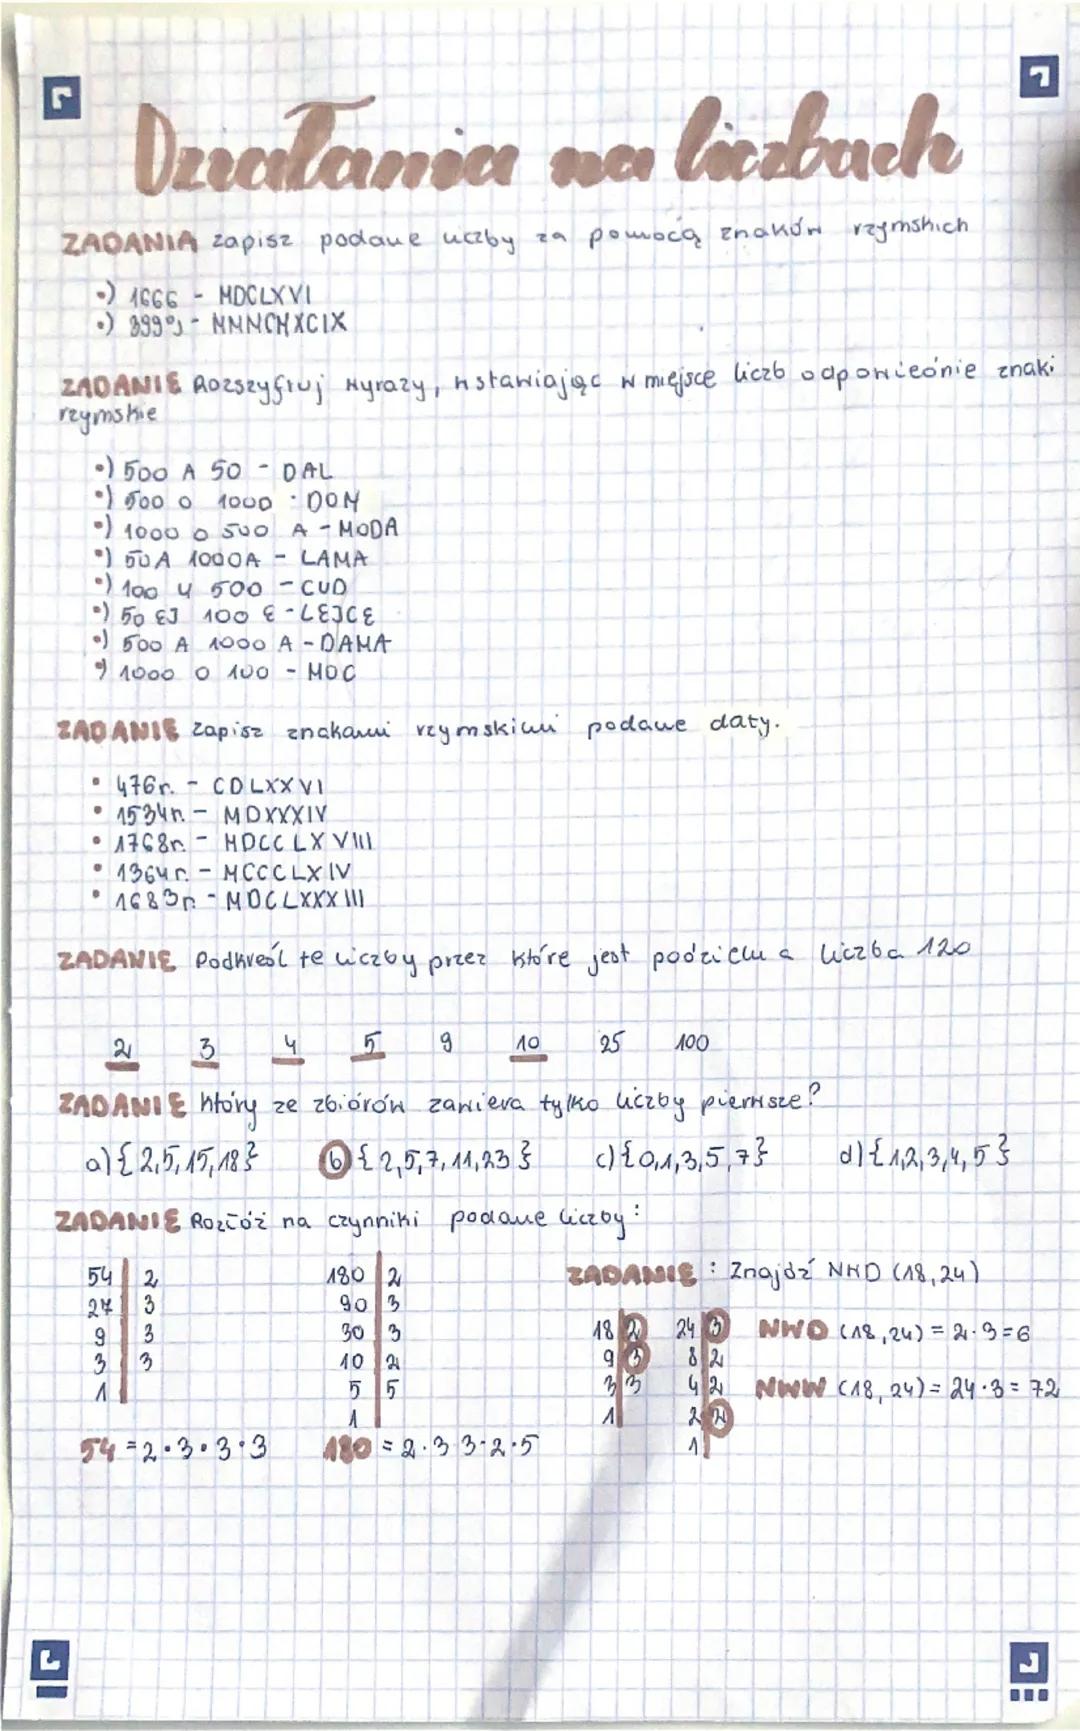 Działania na liczbach
ZADANIA zapisz podane liczby za pomocą znaków rzymskich
•) 1666 - MDCLXVI
•) 3999 - MMMCMXCIX
ZADANIE Rozszyfruj wyrazy, wstawiając w miejsce liczb odpowiednie znaki
rzymskie
•) 500 A 50 - DAL
•) 500 O 1000 - DOM
•) 1000 O 500 A - MODA
•) 50 A 1000A - LAMA
•) 100 U 500 - CUD
•) 50 EJ 100 E - LEJCE
•) 500 A 1000 A - DAMA
•) 1000 O 100 - MOC
ZADANIE zapisz znakami rzymskimi podane daty.
• 476r. - CDLXXVI
• 1534r. - MDXXXIV
• 1768r. - MDCCLXVIII
• 1364r. - MCCCLXIV
• 1683r. - MDCLXXXIII
ZADANIE Podkreśl te liczby przez które jest podzielna liczba 120
2 3 4 5 9 10 25 100
ZADANIE który ze zbiorów zawiera tylko liczby pierwsze?
a) {2,5,15,18} b) {2,5,7,11,23} c) {0,1,3,5,7} d) {1,2,3,4,5}
ZADANIE Rozłóż na czynniki podane liczby:
54 | 2
27 | 3
9 | 3
3 | 3
1
54 = 2·3·3·3
180 | 2
90 | 3
30 | 3
10 | 2
5 | 5
1
180 = 2·3 3·2·5
ZADANIE: Znajdź NWD (18,24)
18 | 2
9 | 3
3 | 3
1
24 | 3
8 | 2
4 | 2
2 | 2
1
NWD (18,24) = 2·3=6
NWW (18,24) = 24·3 = 72